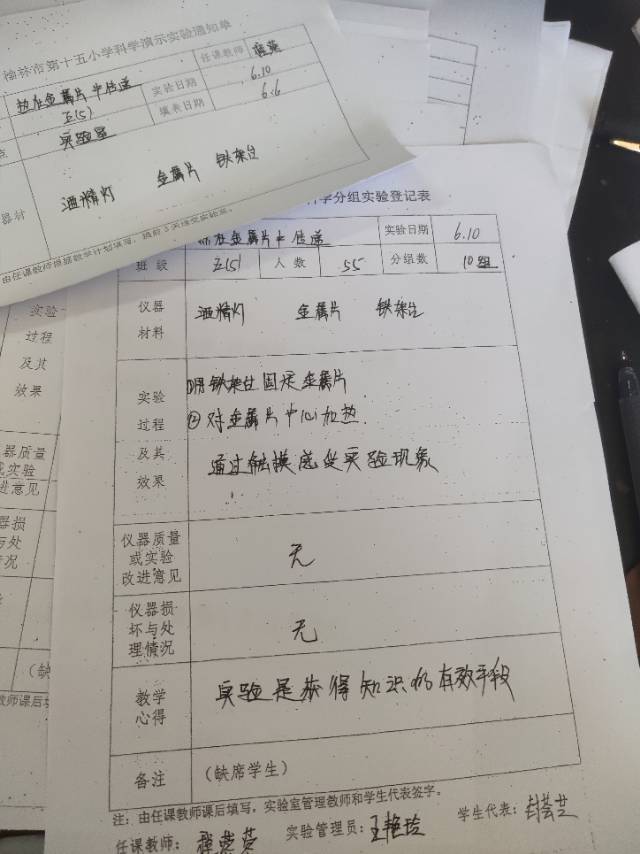 榆林市第十五小学科学演示实验通知单
任课教师
热在金属片中传递
实验日期
6.10
五(5)
填表日期
6.6
点
实验室
器材
酒精灯 金属片 铁架台
由任课教师根据教学计划填写，提前3天送交实验室。
学分组实验登记表
热在金属片中传递
实验日期
6.10
班级
五(5)
人数
55
分组数
10组
仪器
材料
酒精灯 金属片 铁架台
实验
过程
及其
效果
①用铁架台固定金属片
②对金属片中心加热.
通过触摸感受实验现象
仪器质量
或实验
改进意见
无
仪器损
坏与处
理情况
无
教学
心得
实验是获得知识的有效手段
备注
(缺席学生)
注：由任课教师课后填写，实验室管理教师和学生代表签字。
任课教师：
实验管理员：王艳玲
学生代表：
实验
过程
及其
效果
器质量
或实验
进意见
器损
与处
情况
(缺
教师课后填